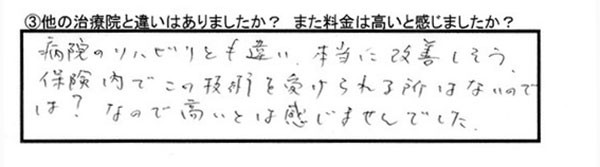 ③他の治療院と違いはありましたか？ また料金は高いと感じましたか？
病院のリハビリとも違い、本当に改善しそう、
保険内でこの技術を受けられる所はないので
は？ なので高いとは感じませんでした。